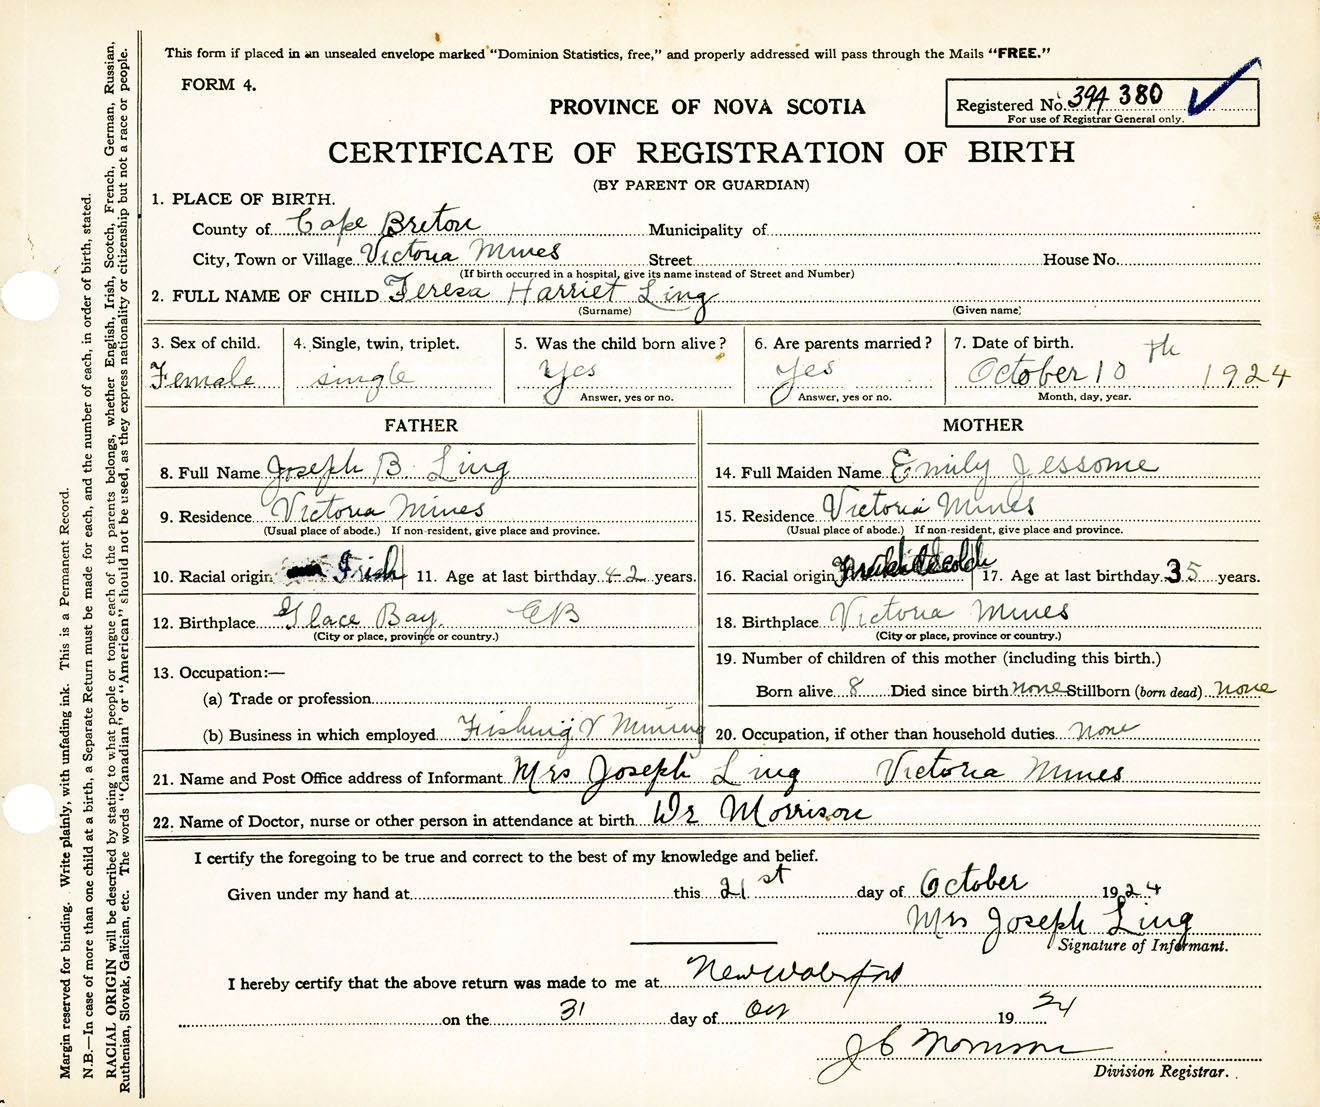 This form if placed in an unsealed envelope marked "Dominion Statistics, free," and properly addressed will pass through the Mails "FREE."
FORM 4.
PROVINCE OF NOVA SCOTIA
Registered No. 394 380
For use of Registrar General only.
CERTIFICATE OF REGISTRATION OF BIRTH
(BY PARENT OR GUARDIAN)
1. PLACE OF BIRTH.
County of Cape Breton Municipality of
City, Town or Village Victoria Mines Street House No.
(If birth occurred in a hospital, give its name instead of Street and Number)
2. FULL NAME OF CHILD Teresa Harriet Ling
(Surname) (Given name)
3. Sex of child. 4. Single, twin, triplet. 5. Was the child born alive? 6. Are parents married? 7. Date of birth.
Female single Yes Yes October 10th 1924
Answer, yes or no. Answer, yes or no. Month, day, year.
FATHER MOTHER
8. Full Name Joseph B. Ling 14. Full Maiden Name Emily Jessome
9. Residence Victoria Mines 15. Residence Victoria Mines
(Usual place of abode.) If non-resident, give place and province. (Usual place of abode.) If non-resident, give place and province.
10. Racial origin Irish 11. Age at last birthday 42 years. 16. Racial origin 17. Age at last birthday 35 years.
12. Birthplace Glace Bay. CB 18. Birthplace Victoria Mines
(City or place, province or country.) (City or place, province or country.)
13. Occupation:— 19. Number of children of this mother (including this birth.)
(a) Trade or profession Born alive 8 Died since birth none Stillborn (born dead) none
(b) Business in which employed Fishing & Mining 20. Occupation, if other than household duties none
21. Name and Post Office address of Informant Mrs Joseph Ling Victoria Mines
22. Name of Doctor, nurse or other person in attendance at birth Dr Morrison
I certify the foregoing to be true and correct to the best of my knowledge and belief.
Given under my hand at this 21st day of October 1924
Mrs Joseph Ling
Signature of Informant.
I hereby certify that the above return was made to me at New Waterford
on the 31 day of Oct 1924
J C Morrison
Division Registrar.
Margin reserved for binding. Write plainly, with unfading ink. This is a Permanent Record.
N.B.—In case of more than one child at a birth, a Separate Return must be made for each, and the number of each, in order of birth, stated.
RACIAL ORIGIN will be described by stating to what people or tongue each of the parents belongs, whether English, Irish, Scotch, French, German, Russian,
Ruthenian, Slovak, Galician, etc. The words "Canadian" or "American" should not be used, as they express nationality or citizenship but not a race or people.